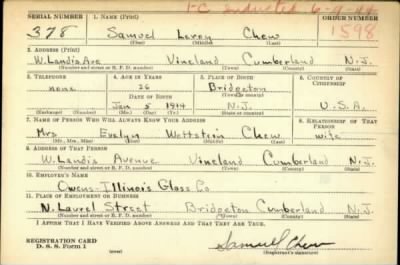 1-C Inducted 6-9-44
SERIAL NUMBER 1. NAME (Print) ORDER NUMBER
378 Samuel Leroy Chew 1598
(First) (Middle) (Last)
2. ADDRESS (Print)
W. Landis Ave Vineland Cumberland N.J.
(Number and street or R. F. D. number) (Town) (County) (State)
3. TELEPHONE 4. AGE IN YEARS 5. PLACE OF BIRTH 6. COUNTRY OF CITIZENSHIP
none 26 Bridgeton
(Town or county)
DATE OF BIRTH
Jan 5 1914 N.J. U.S.A.
(Exchange) (Number) (Mo.) (Day) (Yr.) (State or country)
7. NAME OF PERSON WHO WILL ALWAYS KNOW YOUR ADDRESS 8. RELATIONSHIP OF THAT PERSON
Mrs Evelyn Wettstein Chew wife
(Mr., Mrs., Miss) (First) (Middle) (Last)
9. ADDRESS OF THAT PERSON
W. Landis Avenue Vineland Cumberland N.J.
(Number and street or R. F. D. number) (Town) (County) (State)
10. EMPLOYER'S NAME
Owens-Illinois Glass Co
11. PLACE OF EMPLOYMENT OR BUSINESS
N. Laurel Street Bridgeton Cumberland N.J.
(Number and street or R. F. D. number) (Town) (County) (State)
I AFFIRM THAT I HAVE VERIFIED ABOVE ANSWERS AND THAT THEY ARE TRUE.
REGISTRATION CARD
D. S. S. Form 1
Samuel L Chew
(Registrant's signature)